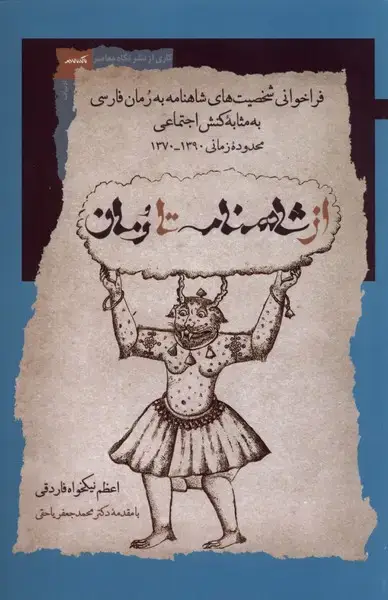 کاری از نشر نگاه معاصر
فراخوانی شخصیت‌های شاهنامه به رُمان فارسی
به مثابه کنش اجتماعی
محدودهٔ زمانی ۱۳۹۰-۱۳۷۰
از شاهنامه تا رُمان
اعظم نیکخواه فاردقی
با مقدمه دکتر محمدجعفر یاحقی